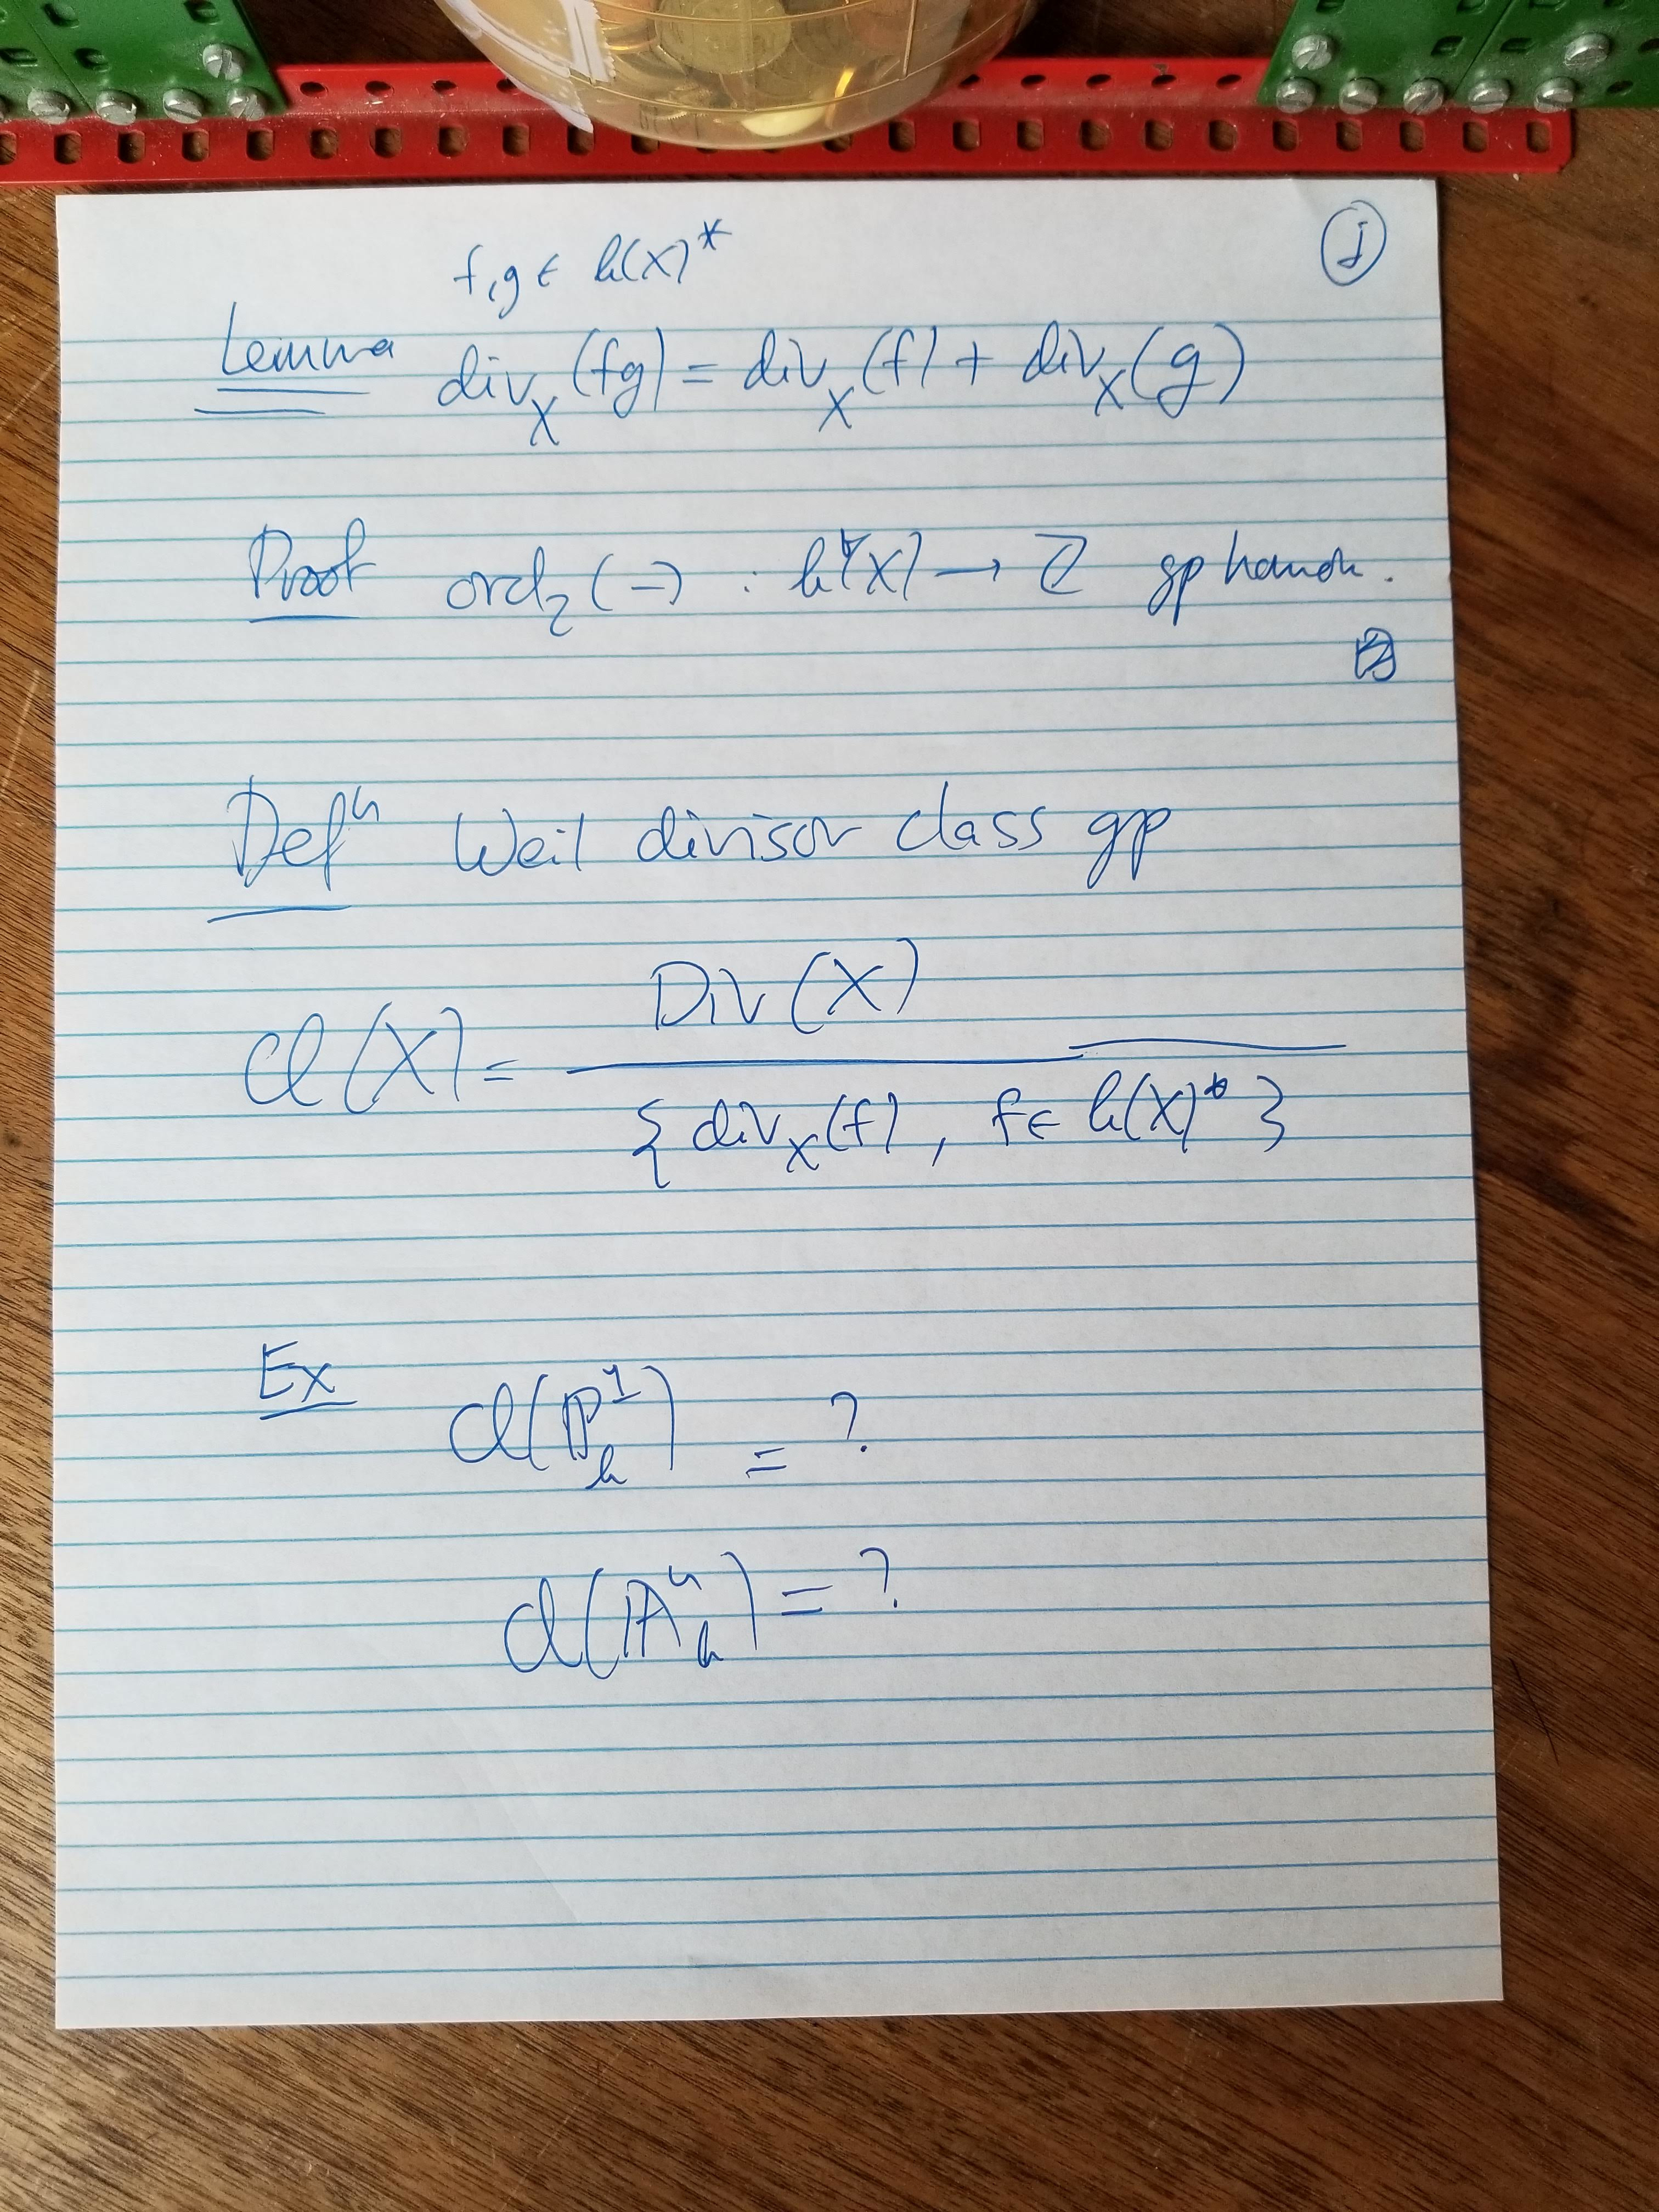 f, g ∈ k(X)* ⓙ
Lemma div_X(fg) = div_X(f) + div_X(g)
Proof ord_Z(-) : k*(X) → ℤ gp homom.
Defⁿ Weil divisor class gp
Cl(X) = Div(X) / { div_X(f), f ∈ k(X)* }
Ex Cl(ℙ¹_k) = ?
Cl(𝔸ⁿ_k) = ?